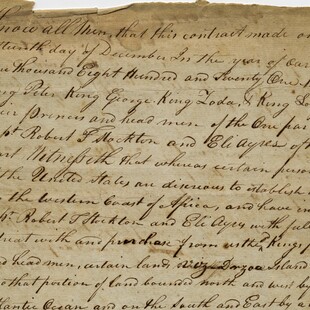 Know all Men, that this contract made on
fifteenth day of December In the year of Our
One thousand Eight Hundred and Twenty One
King Peter King George King Zoda, & King
their Princes and head men of the One par
Capt Robert F Stockton and Eli Ayres of t
part Witnesseth that whereas certain person
the United States are desirous to establish
on the Western Coast of Africa, and have in
Robert F Stockton and Eli Ayres with full
treat with and purchase from us the Kings
and head men, certain lands viz Dozoa Island
o that portion of land bounded north and west by
Atlantic Ocean and on the South and East by a